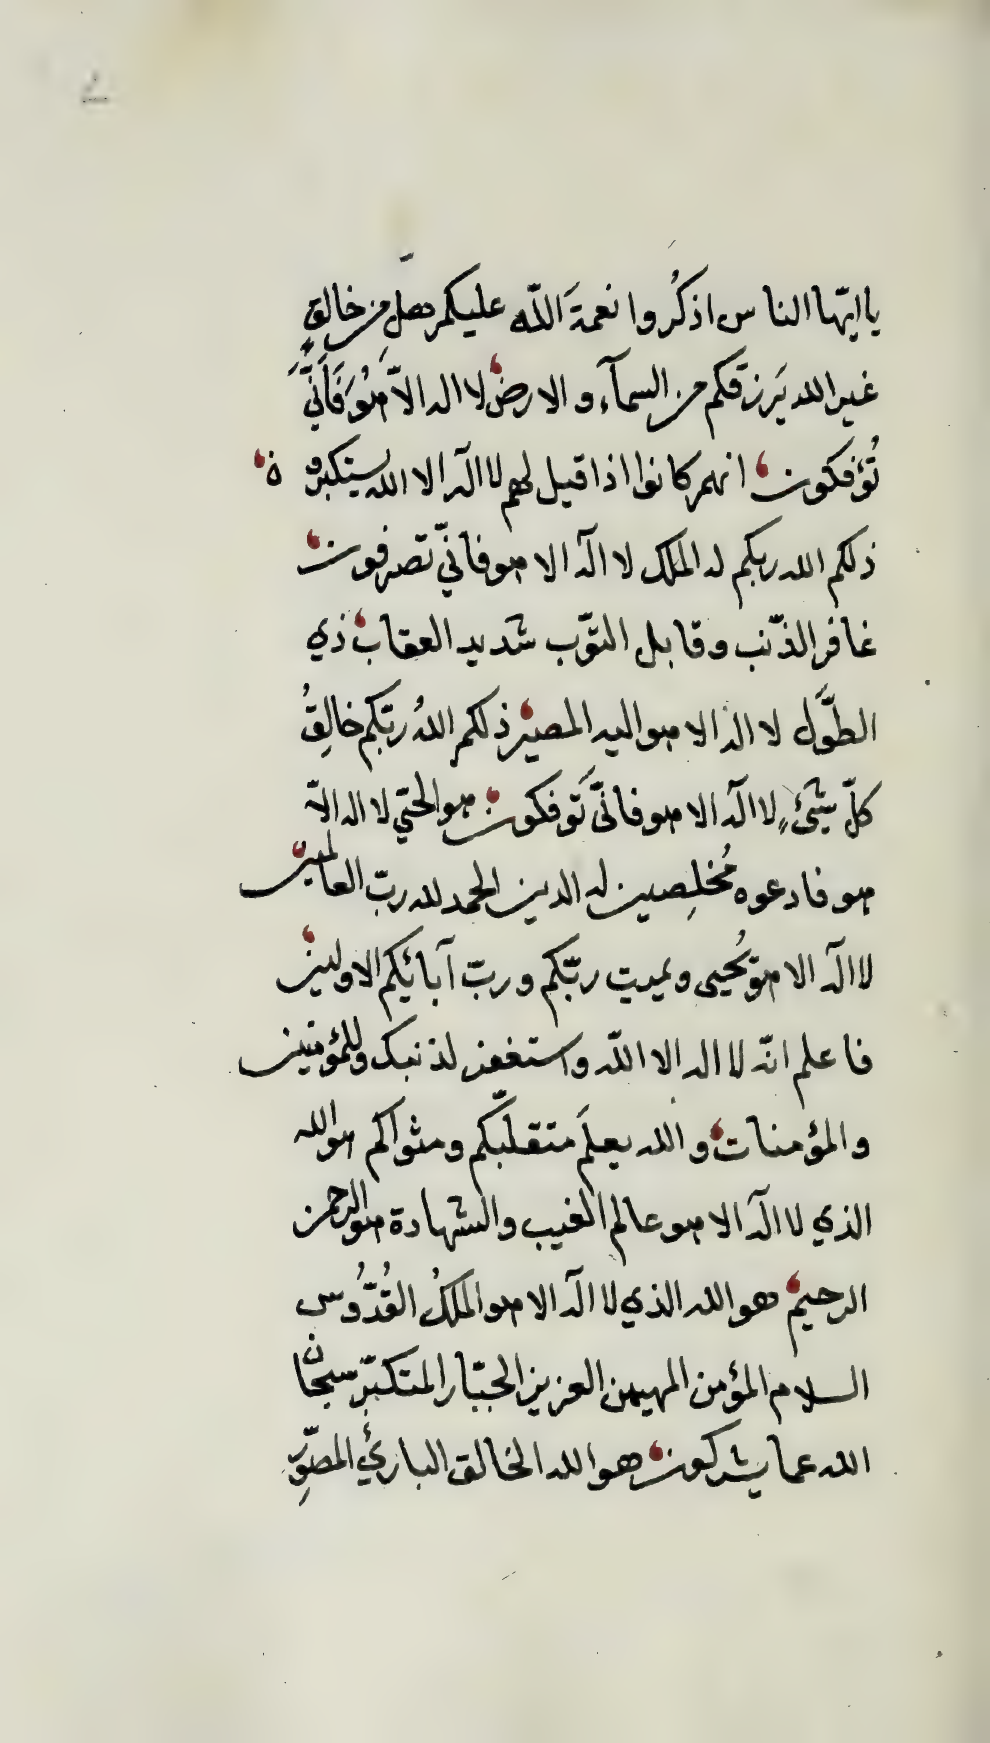 ياايّها الناس اذكُروا نعمةَ اللّه عليكم هل من خالقٍ
غير الله يَرزقكم من السمآء والارض لا اله الاّ هُوَ فَاَنّٰى
تُؤفكون انهم كانوا اذا قيل لهم لا اله الا الله يستكبرون
ذلكم الله ربكم له الملك لا اله الا هو فانّى تصرفون
غافر الذّنب وقابل التوّب شديد العقاب ذي
الطّوَل لا اله الا هو اليه المصير ذلكم اللهُ ربّكم خالِقُ
كلّ شَئٍ لا اله الا هو فانّى تَوفكون هو الحيّ لا اله الاّ
هو فادعوه مُخلِصين له الدين الحمد لله ربّ العالمين
لا اله الا هو يُحيى ويميت ربّكم وربّ آبائكم الاولين
فاعلم انّه لا اله الا اللّه واستغفر لذنبك وللمؤمنين
والمؤمنات والله يعلَم متقلّبكم ومثواكم هو الله
الذي لا اله الا هو عالم الغيب والشهادة هو الرحمن
الرحيم هو الله الذي لا اله الا هو الملكُ القُدُّوس
السلام المؤمن المهيمن العزيز الجبّار المتكبّر سبحان
الله عما يشركون هو الله الخالق البارئُ المصوِّر